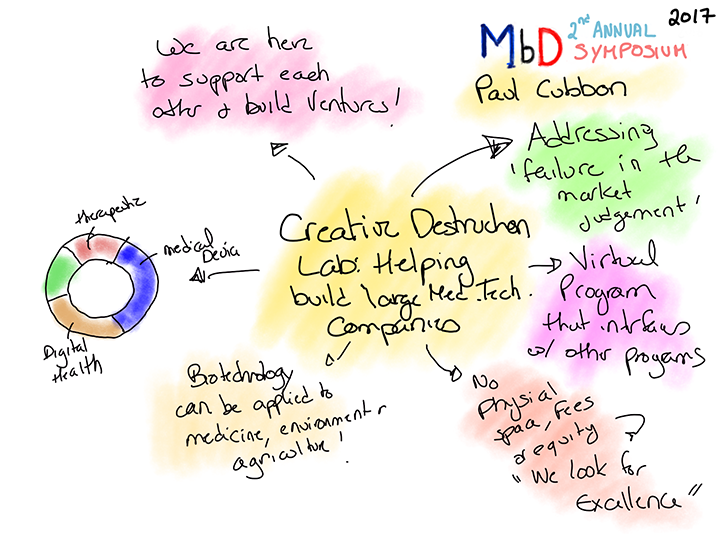 2017
MbD 2nd ANNUAL
SYMPOSIUM
Paul Cubbon
We are here
to support each
other & build Ventures!
Addressing
'failure in the
market
judgement'
Creative Destruction
Lab: Helping
build large Med.Tech.
Companies
Virtual
Program
that interfaces
w/ other programs
therapeutic
medical Device
Digital
Health
Biotechnology
can be applied to
medicine, environment &
agriculture!
No
Physical
space, Fees
or equity
"We look for
Excellence"